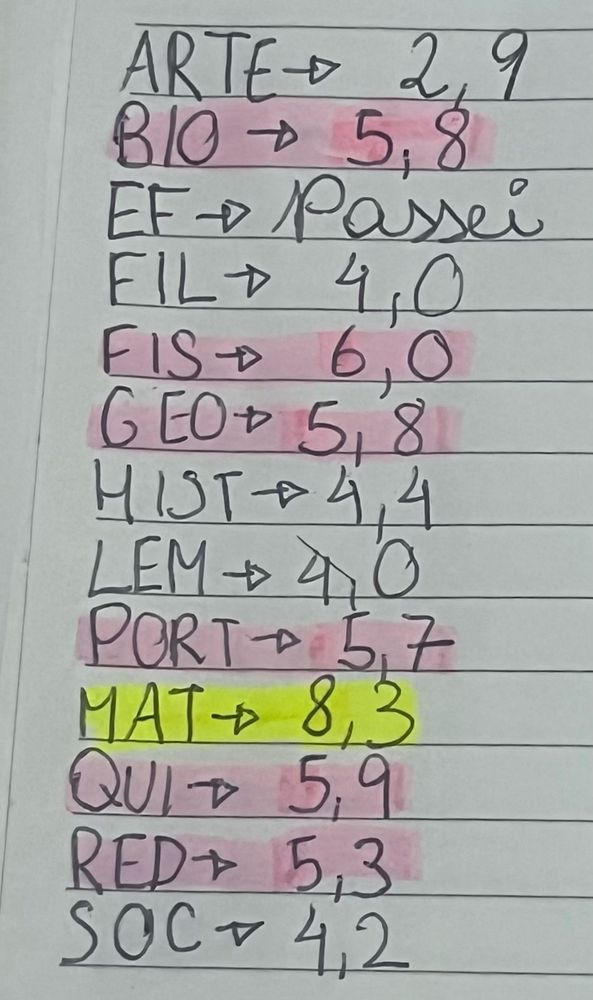 ARTE → 2,9
BIO → 5,8
EF → Passei
FIL → 4,0
FIS → 6,0
GEO → 5,8
HIST → 4,4
LEM → 4,0
PORT → 5,7
MAT → 8,3
QUI → 5,9
RED → 5,3
SOC → 4,2